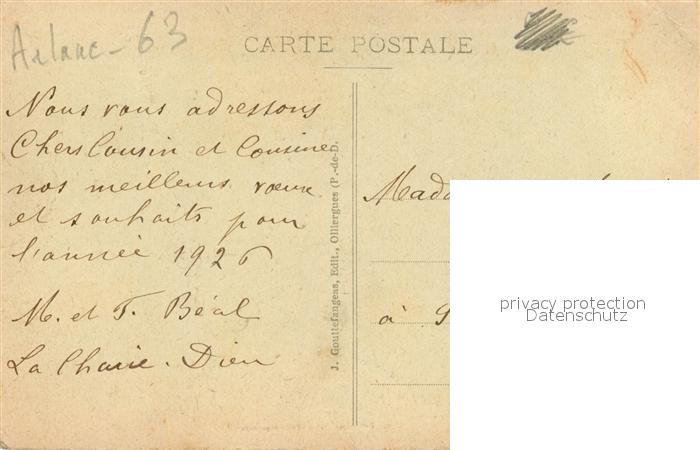 Arlanc - 63
CARTE POSTALE
Nous vous adressons
Chers Cousin et Cousine
nos meilleurs vœux
et souhaits pour
l'année 1926
M. et T. Béal
La Chaise-Dieu
J. Gouttefangeas, Edit., Olliergues (P.-de-D.
à
privacy protection
Datenschutz